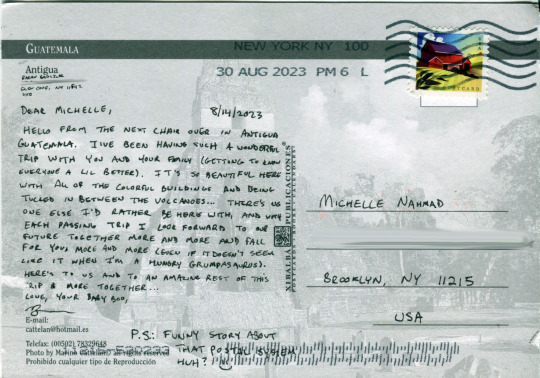 GUATEMALA
NEW YORK NY 100
30 AUG 2023 PM 6 L
Antigua
POSTCARD
8/14/2023
DEAR MICHELLE,
HELLO FROM THE NEXT CHAIR OVER IN ANTIGUA
GUATEMALA. I'VE BEEN HAVING SUCH A WONDERFUL
TRIP WITH YOU AND YOUR FAMILY (GETTING TO KNOW
EVERYONE A LIL BETTER). IT'S SO BEAUTIFUL HERE
WITH ALL OF THE COLORFUL BUILDINGS AND BEING
TUCKED IN BETWEEN THE VOLCANOES... THERE'S NO
ONE ELSE I'D RATHER BE HERE WITH, AND WITH
EACH PASSING TRIP I LOOK FORWARD TO OUR
FUTURE TOGETHER MORE AND MORE AND FALL
FOR YOU MORE AND MORE (EVEN IF IT DOESN'T SEEM
LIKE IT WHEN I'M A HUNGRY GRUMPASAURUS).
HERE'S TO US AND TO AN AMAZING REST OF THIS
TRIP & MORE TOGETHER...
LOVE, YOUR BABY BOO,
P.S: FUNNY STORY ABOUT
THAT POSTAL SYSTEM
HUH?
XIBALBA PUBLICACIONES
MICHELLE NAHMAD
BROOKLYN, NY 11215
USA
E-mail:
cattelan@hotmail.es
Telefax: (00502) 78329648
Photo by Marino Cattelan all rights reserved
Prohibido cualquier tipo de Reproducción